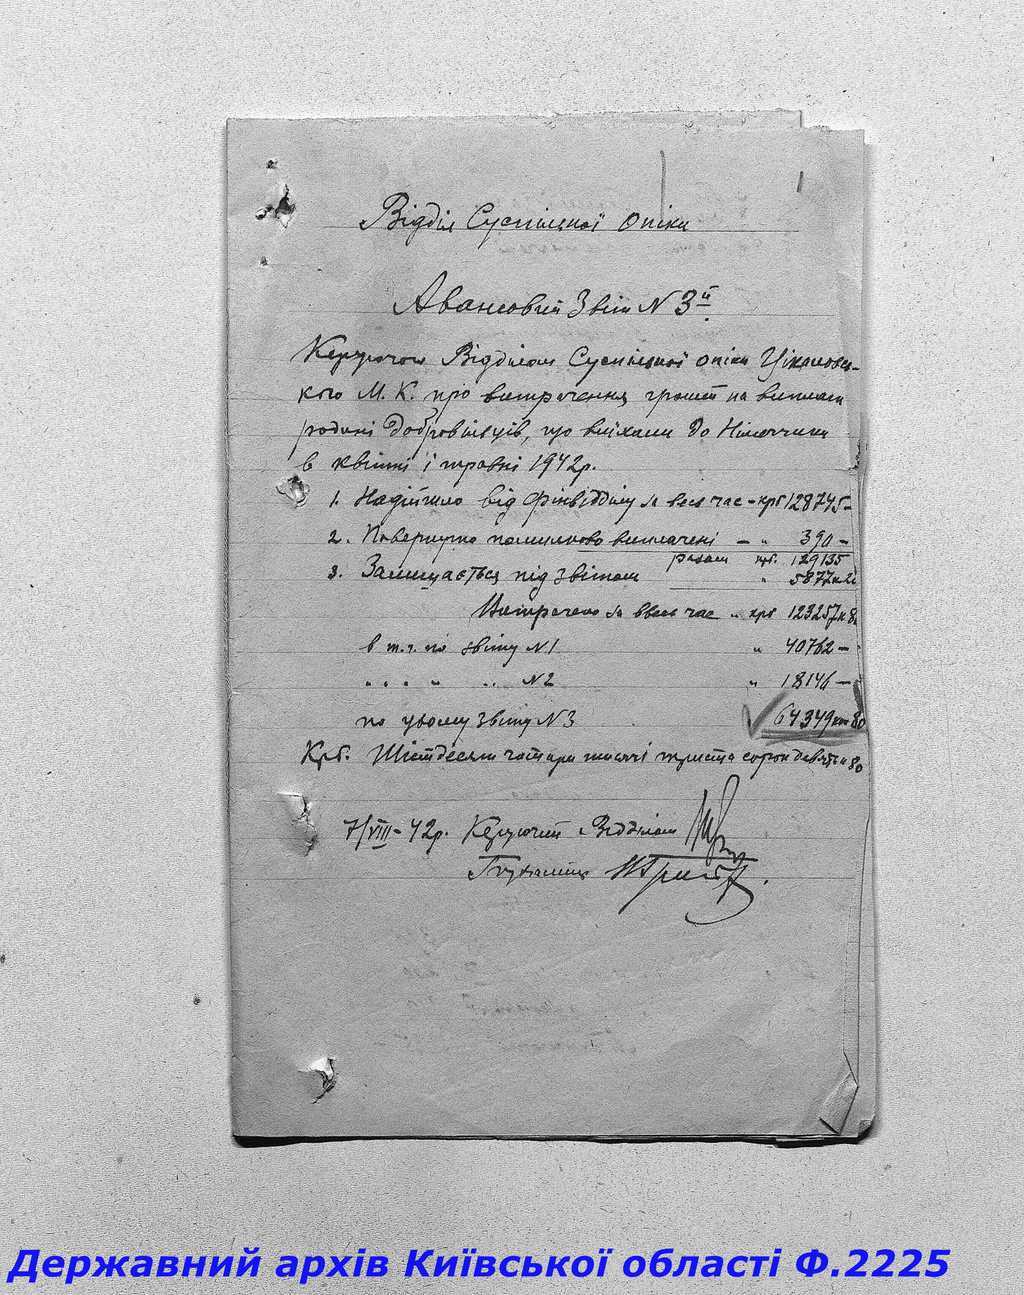 Відділ Суспільної опіки
Авансовий Звіт N 3й
Керуючого Відділом Суспільної опіки Ціхановсь-
кого М. К. про витрачення грошей на виплати
родині добровільців, що виїхали до Німеччини
в квітні і травні 1942р.
1. Надійшло від Фінвідділу за весь час - крб 128745-
2. Повернуто помилково виплачені - " 390 -
разом крб. 129135
3. Залишається під звітом " 5877
Витрачено за ввесь час " крб 123257 к 80
в т.ч. по звіту N1 " 40762 -
" " " " " N2 " 18146 -
по цьому звіту N3 64349 коп 80
Крб. Шістдесят чотири тисячі триста сорок девять к 80
7/VIII-42р. Керуючий Відділом
Бухгалтер
Державний архів Київської області Ф.2225